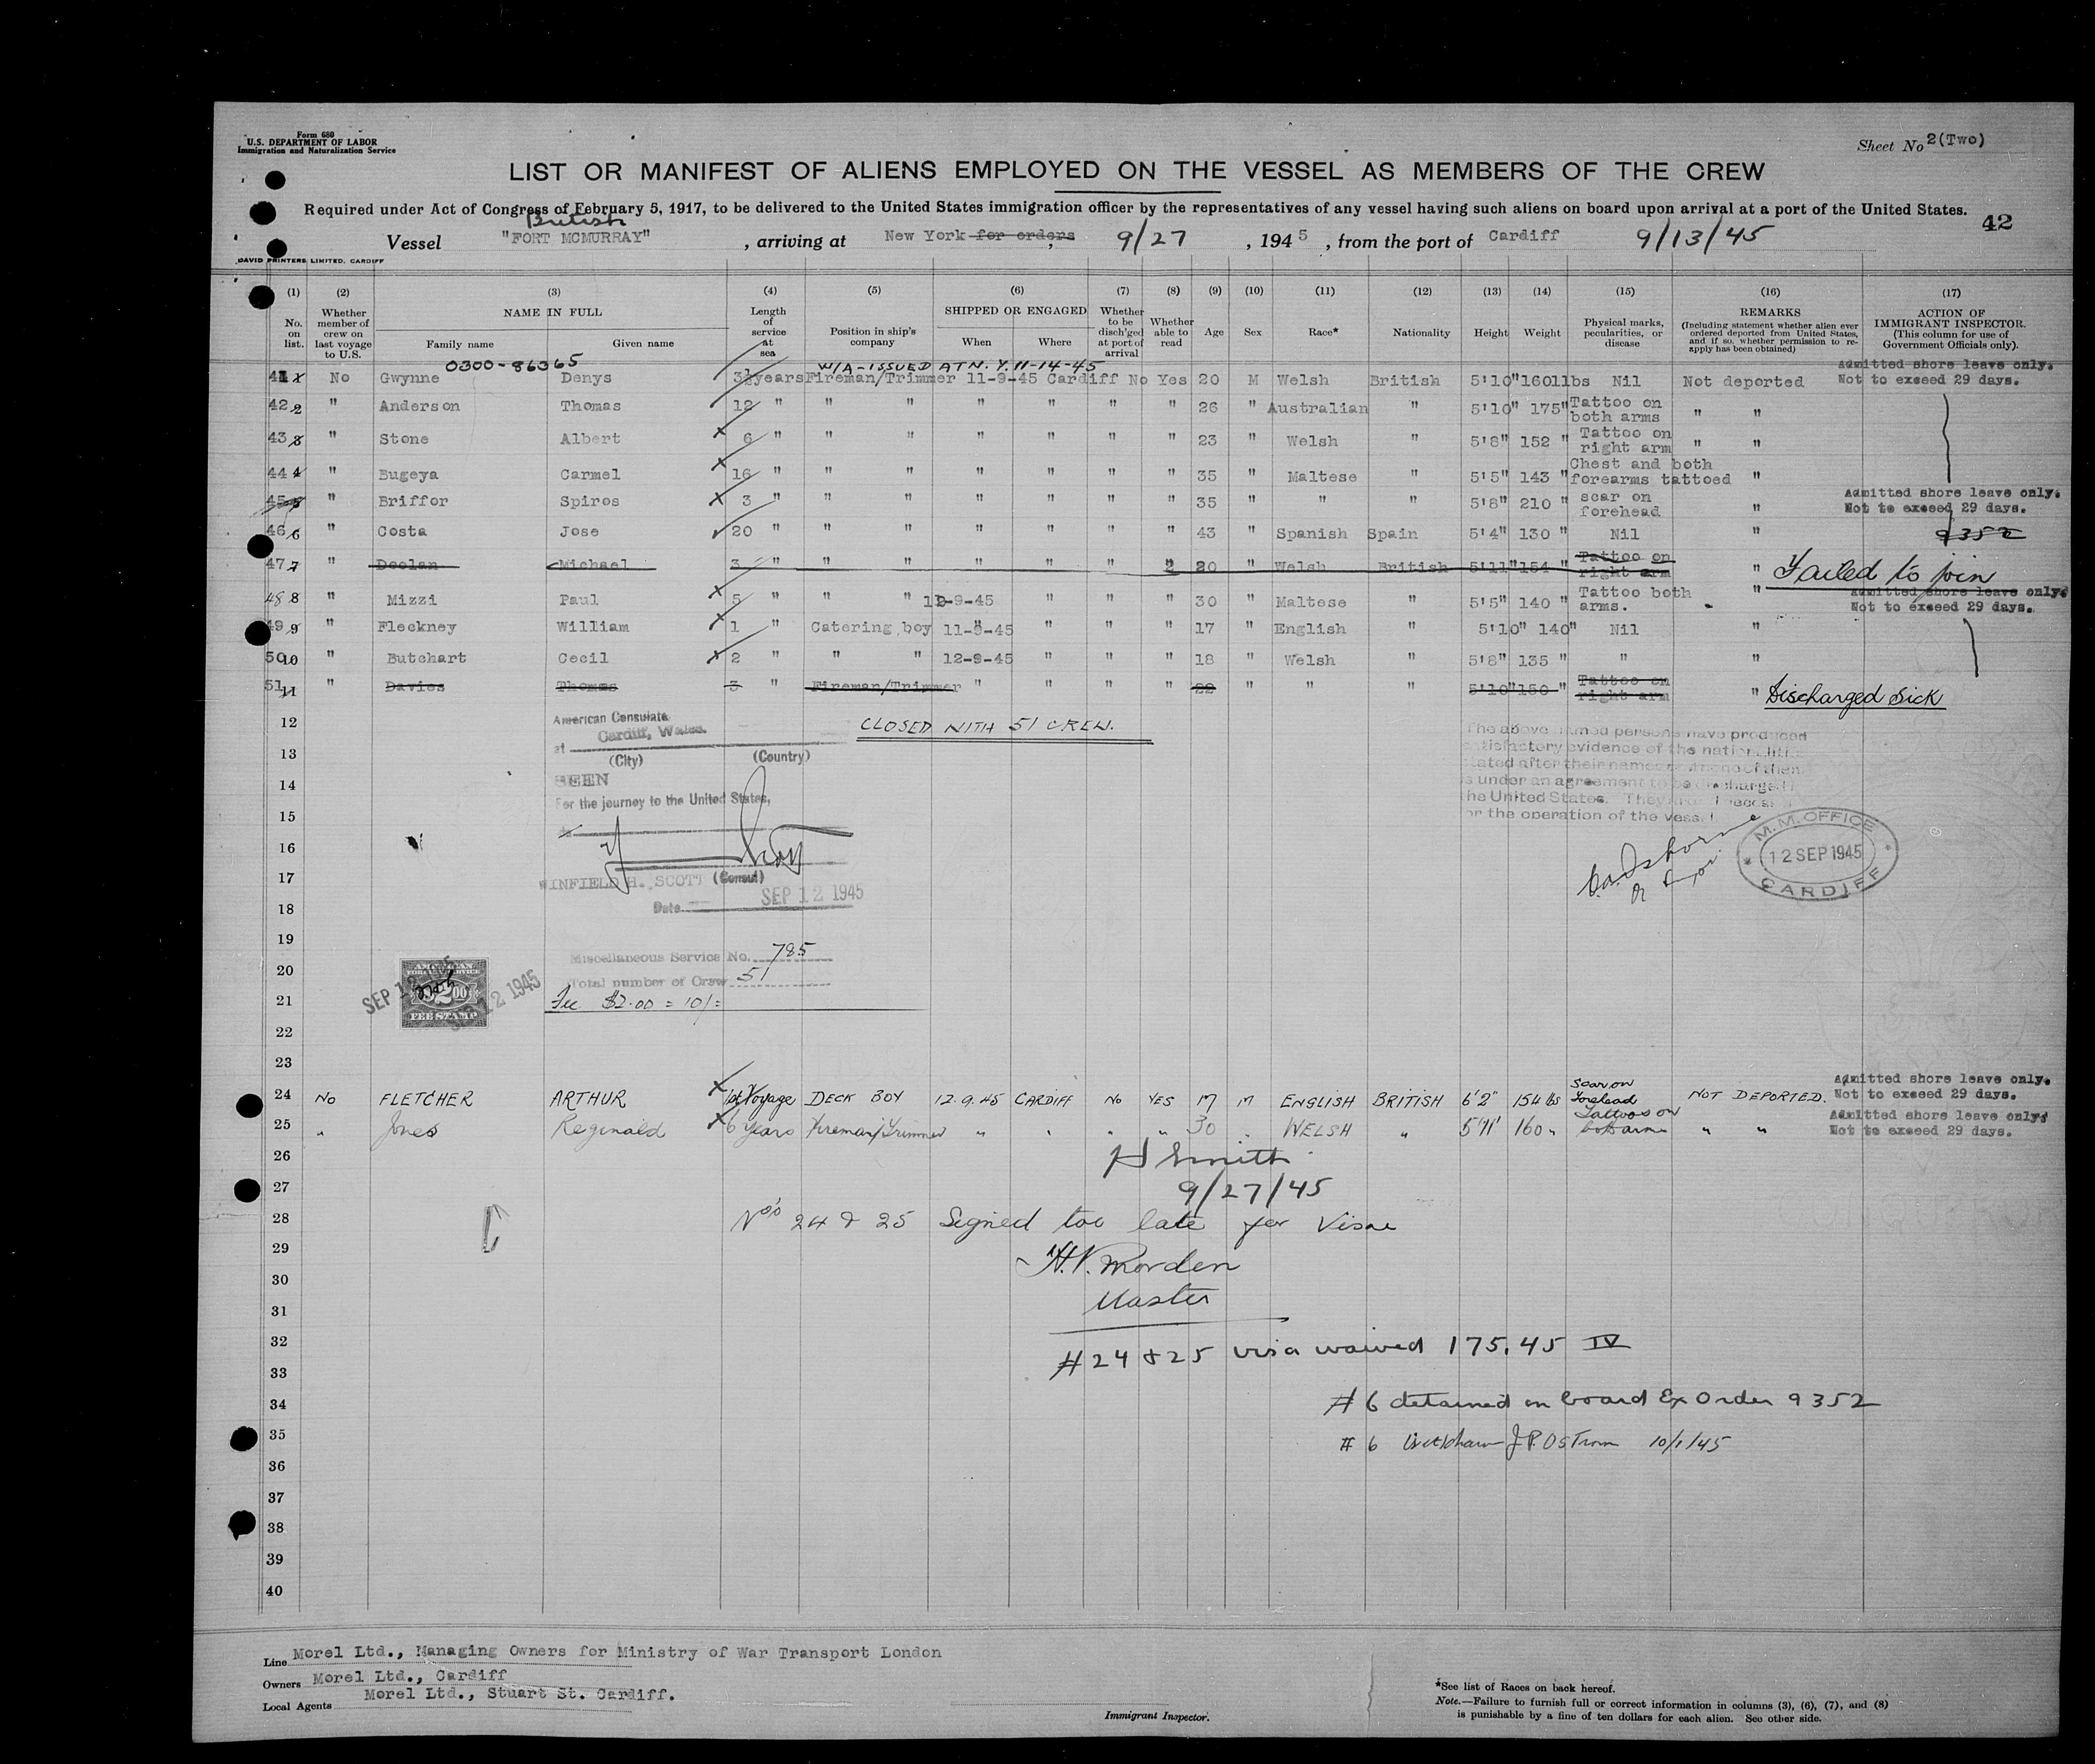 Form 680
U.S. DEPARTMENT OF LABOR
Immigration and Naturalization Service
Sheet No 2(Two)
LIST OR MANIFEST OF ALIENS EMPLOYED ON THE VESSEL AS MEMBERS OF THE CREW
Required under Act of Congress of February 5, 1917, to be delivered to the United States immigration officer by the representatives of any vessel having such aliens on board upon arrival at a port of the United States.
42
British
Vessel "FORT MCMURRAY", arriving at New York for orders, 9/27, 1945, from the port of Cardiff 9/13/45
DAVID PRINTERS LIMITED, CARDIFF
(1) (2) (3) (4) (5) (6) (7) (8) (9) (10) (11) (12) (13) (14) (15) (16) (17)
No. on list.
Whether member of crew on last voyage to U.S.
NAME IN FULL
Family name Given name
Length of service at sea
Position in ship's company
SHIPPED OR ENGAGED
When Where
Whether to be disch'ged at port of arrival
Whether able to read
Age
Sex
Race*
Nationality
Height
Weight
Physical marks, peculiarities, or disease
REMARKS
(Including statement whether alien ever ordered deported from United States, and if so, whether permission to re-apply has been obtained)
ACTION OF IMMIGRANT INSPECTOR.
(This column for use of Government Officials only).
0300-86365 W/A-ISSUED AT N.Y. 11-14-45 Admitted shore leave only.
41 1 No Gwynne Denys 3½years Fireman/Trimmer 11-9-45 Cardiff No Yes 20 M Welsh British 5'10" 160llbs Nil Not deported Not to exceed 29 days.
42 2 " Anderson Thomas 12 " " " " " " " 26 " Australian " 5'10" 175" Tattoo on both arms " "
43 3 " Stone Albert 6 " " " " " " " 23 " Welsh " 5'8" 152 " Tattoo on right arm " "
44 4 " Bugeya Carmel 16 " " " " " " " 35 " Maltese " 5'5" 143 " Chest and both forearms tattoed "
45 5 " Briffor Spiros 3 " " " " " " " 35 " " " 5'8" 210 " scar on forehead " Admitted shore leave only. Not to exceed 29 days.
46 6 " Costa Jose 20 " " " " " " " 43 " Spanish Spain 5'4" 130 " Nil " 9352
47 7 " Doolan Michael 3 " " " " " " " 20 " Welsh British 5'11" 154 " Tattoo on right arm " Failed to join
48 8 " Mizzi Paul 5 " " " 12-9-45 " " " 30 " Maltese " 5'5" 140 " Tattoo both arms. " Admitted shore leave only. Not to exceed 29 days.
49 9 " Fleckney William 1 " Catering boy 11-9-45 " " " 17 " English " 5'10" 140" Nil "
50 10 " Butchart Cecil 2 " " " 12-9-45 " " " 18 " Welsh " 5'8" 135 " " "
51 11 " Davies Thomas 3 " Fireman/Trimmer " " " " 22 " " " 5'10" 150 " Tattoo on right arm " Discharged Sick
12
CLOSED WITH 51 CREW.
American Consulate
Cardiff, Wales.
at
(City) (Country)
13
14
SEEN
For the journey to the United States,
15
16
17
WINFIELD H. SCOTT (Consul)
Date SEP 12 1945
18
The above named persons have produced
satisfactory evidence of the nationalities
stated after their names and none of them
is under an agreement to be discharged in
the United States. They are necessary
for the operation of the vessel
M.M. OFFICE
12 SEP 1945
CARDIFF
19
Miscellaneous Service No. 785
20
Total number of Crew 51
21
Fee $2.00 = 10/=
AMERICAN
FOREIGN SERVICE
$2.00
FEE STAMP
SEP 12 1945
22
23
24 No FLETCHER ARTHUR 1st Voyage DECK BOY 12.9.45 CARDIFF No YES 17 M ENGLISH BRITISH 6'2" 154 lbs Scar on forehead NOT DEPORTED. Admitted shore leave only. Not to exceed 29 days.
25 " Jones Reginald 6 years Fireman/Trimmer " " " " 30 " WELSH " 5'11" 160 " Tattoos on both arms " " Admitted shore leave only. Not to exceed 29 days.
26
H Smith
27
9/27/45
28
Nos 24 & 25 Signed too late for Visae
29
H.V. Morden
30
Master
31
32
# 24 & 25 visa waived 175.45 IV
33
34
# 6 detained on board Ex Order 9352
35
# 6 10/1/45
36
37
38
39
40
Line Morel Ltd., Managing Owners for Ministry of War Transport London
Owners Morel Ltd., Cardiff
Local Agents Morel Ltd., Stuart St. Cardiff.
Immigrant Inspector.
*See list of Races on back hereof.
Note.—Failure to furnish full or correct information in columns (3), (6), (7), and (8)
is punishable by a fine of ten dollars for each alien. See other side.